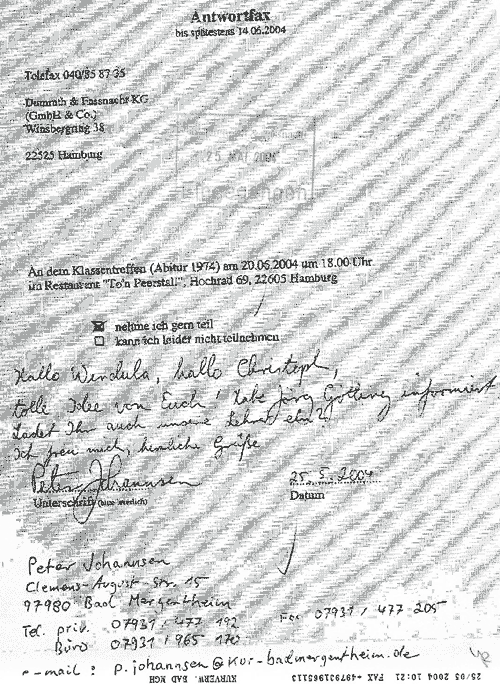 Antwortfax
bis spätestens 14.06.2004
Telefax 040/85 87 35
Dumrath & Fassnacht KG
(GmbH & Co.)
Winsbergring 38
22525 Hamburg
25. MAI 2004
An dem Klassentreffen (Abitur 1974) am 20.06.2004 um 18.00 Uhr
im Restaurant "To'n Peerstall", Hochrad 69, 22605 Hamburg
☒ nehme ich gern teil
☐ kann ich leider nicht teilnehmen
Hallo Wendula, hallo Christoph,
tolle Idee von Euch! Habe Jörg Götting informiert
Ladet Ihr auch unsere Lehrer ein?
Ich freu mich, herzliche Grüße
Peter Johannsen 25.5.2004
Unterschrift (bitte leserlich) Datum
Peter Johannsen
Clemens-August-Str. 15
97980 Bad Mergentheim
Tel. priv. 07931 / 477 192 Fax 07931 / 477 205
Büro 07931 / 965 170
e-mail: p.johannsen@kur-badmergentheim.de
25/05 2004 10:21 FAX +497931965113 KURVERW. BAD MGH